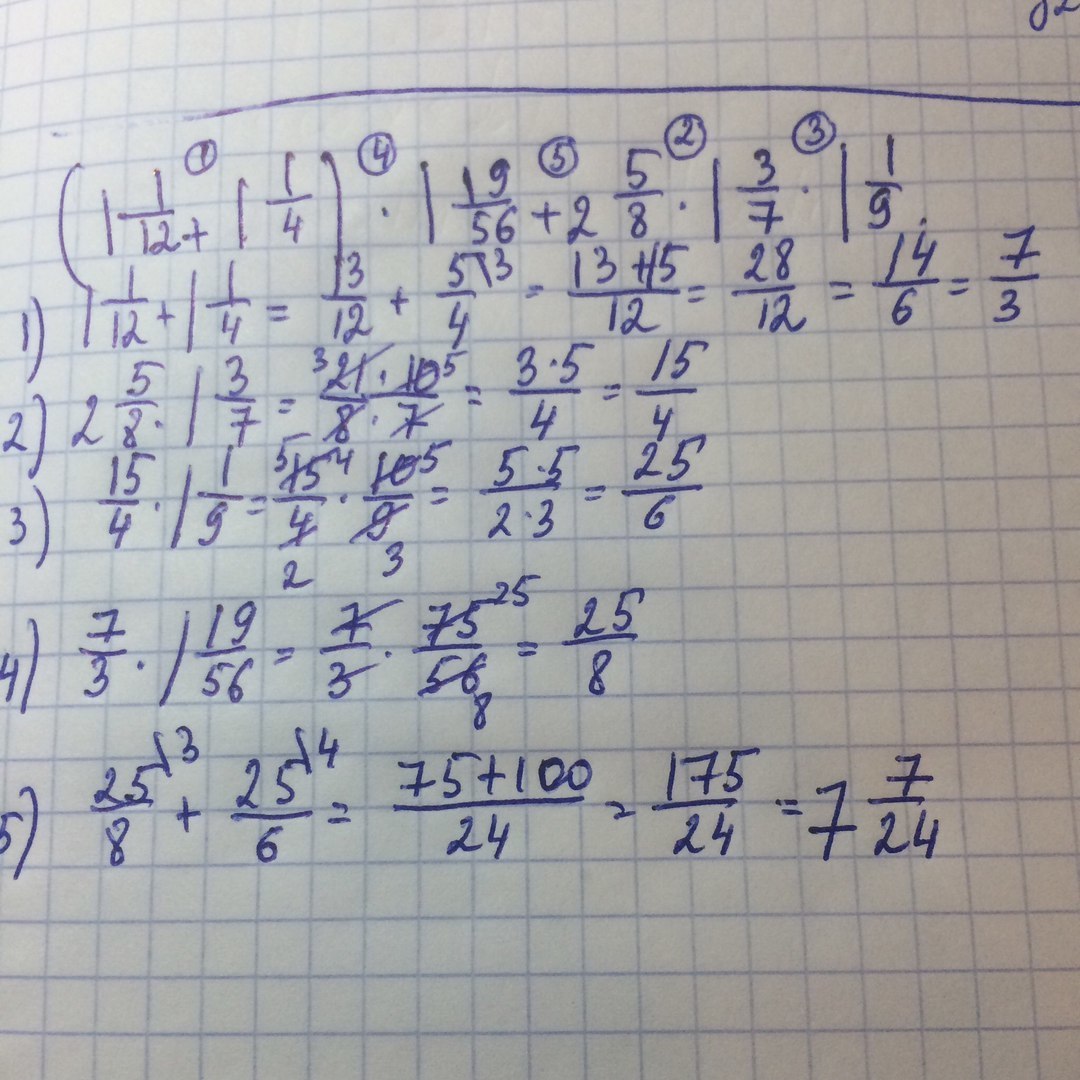 ① ④ ⑤ ② ③
(1 1/12 + 1 1/4) · 1 19/56 + 2 5/8 · 1 3/7 · 1 1/9.
1) 1 1/12 + 1 1/4 = 13/12 + 5\3/4 = 13+15/12 = 28/12 = 14/6 = 7/3
2) 2 5/8 · 1 3/7 = 3 21 · 10 5/8 · 7 = 3·5/4 = 15/4
3) 15/4 · 1 1/9 = 5 15 4/4 2 · 10 5/9 3 = 5·5/2·3 = 25/6
4) 7/3 · 1 19/56 = 7/3 · 75 25/56 8 = 25/8
5) 25\3/8 + 25\4/6 = 75+100/24 = 175/24 = 7 7/24